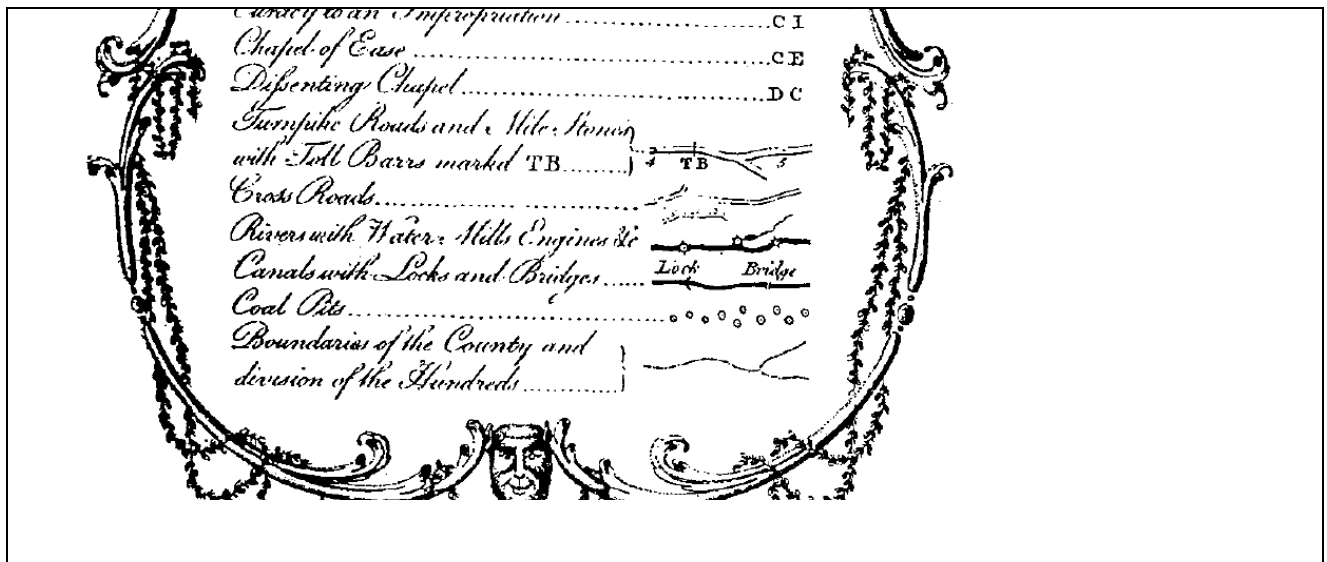 Curacy to an Impropriation ........................ C I
Chapel of Ease ........................................ C E
Dissenting Chapel ........................................ D C
Turnpike Roads and Mile Stones
with Toll Barrs markd TB ........ 4 TB 5
Cross Roads ........................................
Rivers with Water Mills Engines &c
Lock Bridge
Canals with Locks and Bridges ......
Coal Pits ........................................
Boundaries of the County and
division of the Hundreds ............